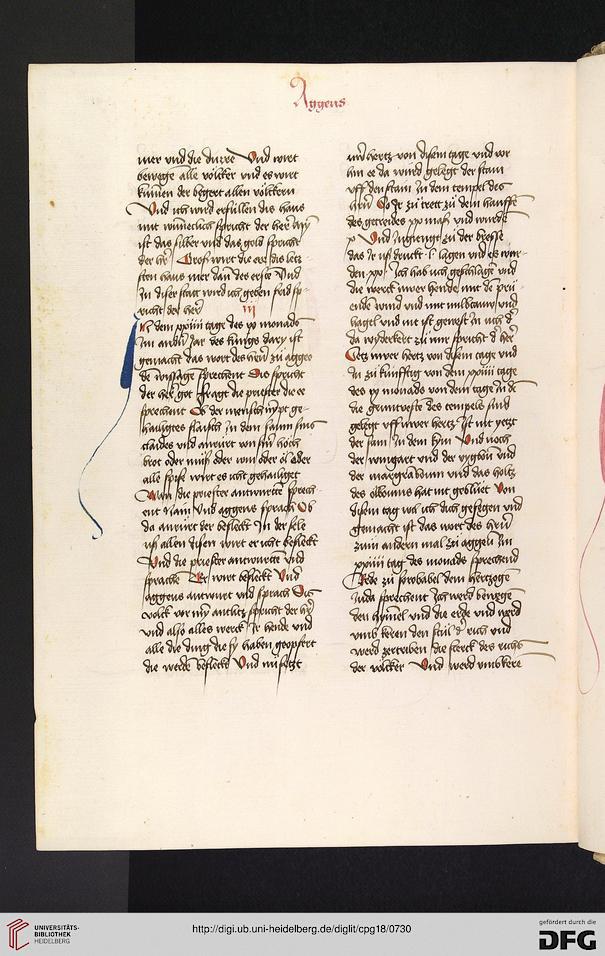 Aggeus
mer vnd die durre Vnd wirt
bewege alle völcker vnd es wirt
kumen der begert allen völckern
Vnd ich wird erfüllen dis haus
mit wirdiclich spricht der her
ist das silber vnd das gold spricht
der her Gros wirt die ere dis letz
sten haus mer dan des erste Vnd
In diser statt wird ich geben frid sp
richt der her III
In dem xxiiii tage des monads
Im andern Jar des kunigs dary ist
gemacht das wort des heren zu aggeo
de wissage sprechent Dis spricht
der her got frage die priester die ee
sprechent Ob der mensch nympt ge
hailigtes flaisch In dem saum sins
claides vnd anrürt von siner höch
brot oder müs oder win oder öl oder
alle spise wirt es icht gehailiget
die priester antwurte sprech
ent Nain Vnd aggeus sprach Ob
da anrürt der befleckt In der sele
us allen disen wirt er icht befleckt
Vnd die priester antwurten vnd
sprache Er wirt befleckt Vnd
aggeus antwurt vnd sprach Dis
volck vor mym antlitz spricht der her
vnd also alles werck Ir hende vnd
alle die ding die sy haben geopfert
die werden befleckt Vnd nu setzt
uwer hertz von disem tage vnd vor
hin ee da wird gelegt der stain
vff den stain In dem tempel des
heren So Ir zu trett zu dem hauffe
des getreides xx mass vnd wurde
x Vnd Ingienge zu der presse
das Ir us druckt l lagen vnd es wur
den xx Ich hab uch geschlage
die werck uwer hende mit de
wind vnd mit miltauw vnd
hagel vnd nit ist gewest In uch
da widerkert zu mir spricht der her
Setz uwer hertz von disem tage vnd
In zu kunfftig von dem xxiiii tage
des ix monads von dem tage In de
die gruntveste des tempels sind
gelegt vff uwer hertz Ist nit yetzt
der sam In dem kym Vnd noch
der wingart vnd der vygbom vnd
der margrabbaum vnd das holtz
des ölboums hat nit geblüet Von
disem tag wil ich dich gesegen vnd
gemacht ist das wort des heren
zum andern mal zu aggeu Im
xxiiii tag des monads sprechend
Rede zu sorobabel dem hertzoge
Juda sprechent Ich werd bewege
den hymel vnd die erde vnd werd
vmb keren den stul der rich vnd
werd zertriben die sterck des richs
der völcker Vnd werd vmb kere
UNIVERSITÄTS-
BIBLIOTHEK
HEIDELBERG
http://digi.ub.uni-heidelberg.de/diglit/cpg18/0730
gefördert durch die
DFG